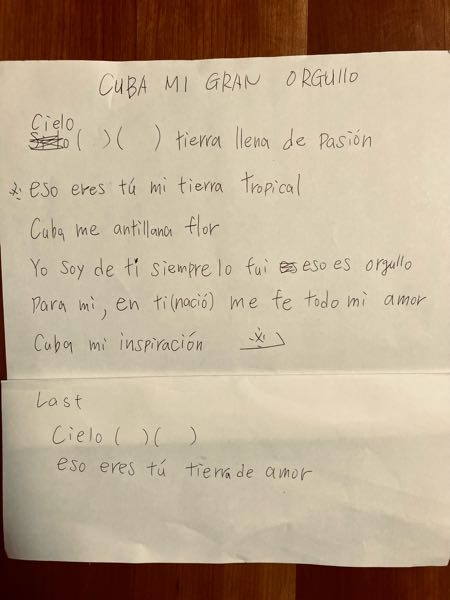 CUBA MI GRAN ORGULLO
Cielo
( ) ( ) tierra llena de pasión
※ eso eres tú mi tierra tropical
Cuba me antillana flor
Yo soy de ti siempre lo fui eso es orgullo
para mi, en ti (nació) me fe todo mi amor
Cuba mi inspiración ※
Last
Cielo ( ) ( )
eso eres tú tierra de amor